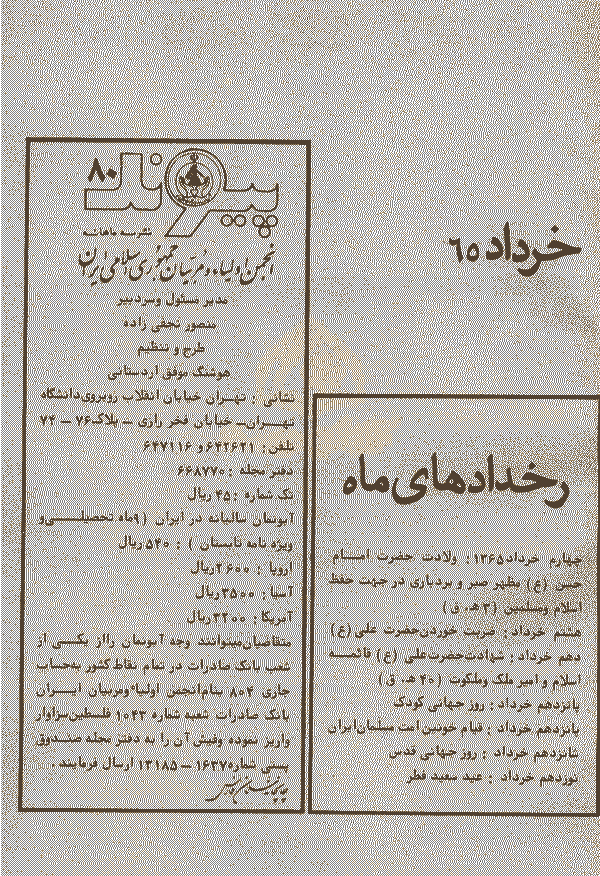 خرداد ۶۵
رخدادهای ماه
چهارم خرداد ۱۳۶۵: ولادت حضرت امام
حسن (ع) مظهر صبر و بردباری در جهت حفظ
اسلام و مسلمین (۳ هـ. ق)
هشتم خرداد: ضربت خوردن حضرت علی (ع)
دهم خرداد: شهادت حضرت علی (ع) قائمه
اسلام و امیر ملک وملکوت (۴۰ هـ. ق)
پانزدهم خرداد: روز جهانی کودک
پانزدهم خرداد: قیام خونین امت مسلمان ایران
شانزدهم خرداد: روز جهانی قدس
نوزدهم خرداد: عید سعید فطر
پیوند ۸۰
نشریه ماهانه
انجمن اولیاء و مربیان جمهوری اسلامی ایران
مدیر مسئول وسردبیر
منصور نجفی زاده
طرح و تنظیم
هوشنگ موفق اردستانی
نشانی: تهران خیابان انقلاب روبروی دانشگاه
تهران ـ خیابان فخر رازی ـ پلاک ۷۶ ـ ۷۴
تلفن: ۶۴۲۶۲۱ و ۶۴۷۱۱۶
دفتر مجله: ۶۶۸۷۷۰
تک شماره: ۴۵ ریال
آبونمان سالیانه در ایران (۹ ماه تحصیلی و
ویژه نامه تابستان): ۵۴۰ ریال
اروپا: ۲۶۰۰ ریال
آسیا: ۲۵۰۰ ریال
آمریکا: ۳۲۰۰ ریال
متقاضیان میتوانند وجه آبونمان رااز یکی از
شعب بانک صادرات در تمام نقاط کشور به حساب
جاری ۸۰۴ بنام انجمن اولیا و مربیان ایران
بانک صادرات شعبه شماره ۱۰۴۳ فلسطین سزاوار
واریز نموده وفیش آن را به دفتر مجله صندوق
پستی شماره ۱۶۳۷ ـ ۱۳۱۸۵ ارسال فرمایند.